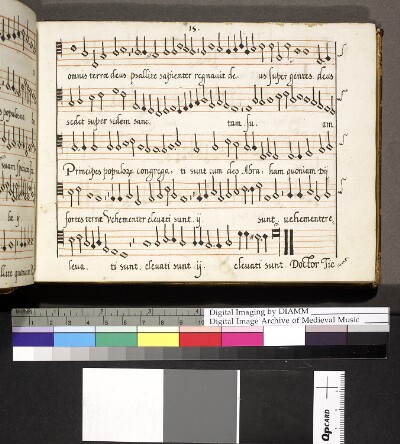 15.
omnis terræ deus psallite sapienter regnavit de. us super gentes. deus
sedet super sedem sanc. tam su. am
Principes populorum congrega. ti sunt cum deo Abra. ham quoniam Dij
fortes terræ Vehementer elevati sunt. ij. sunt. vehementere.
leva. ti sunt. elevati sunt ij. elevati sunt. Doctor Tie
Digital Imaging by DIAMM
Digital Image Archive of Medieval Music
QPCARD